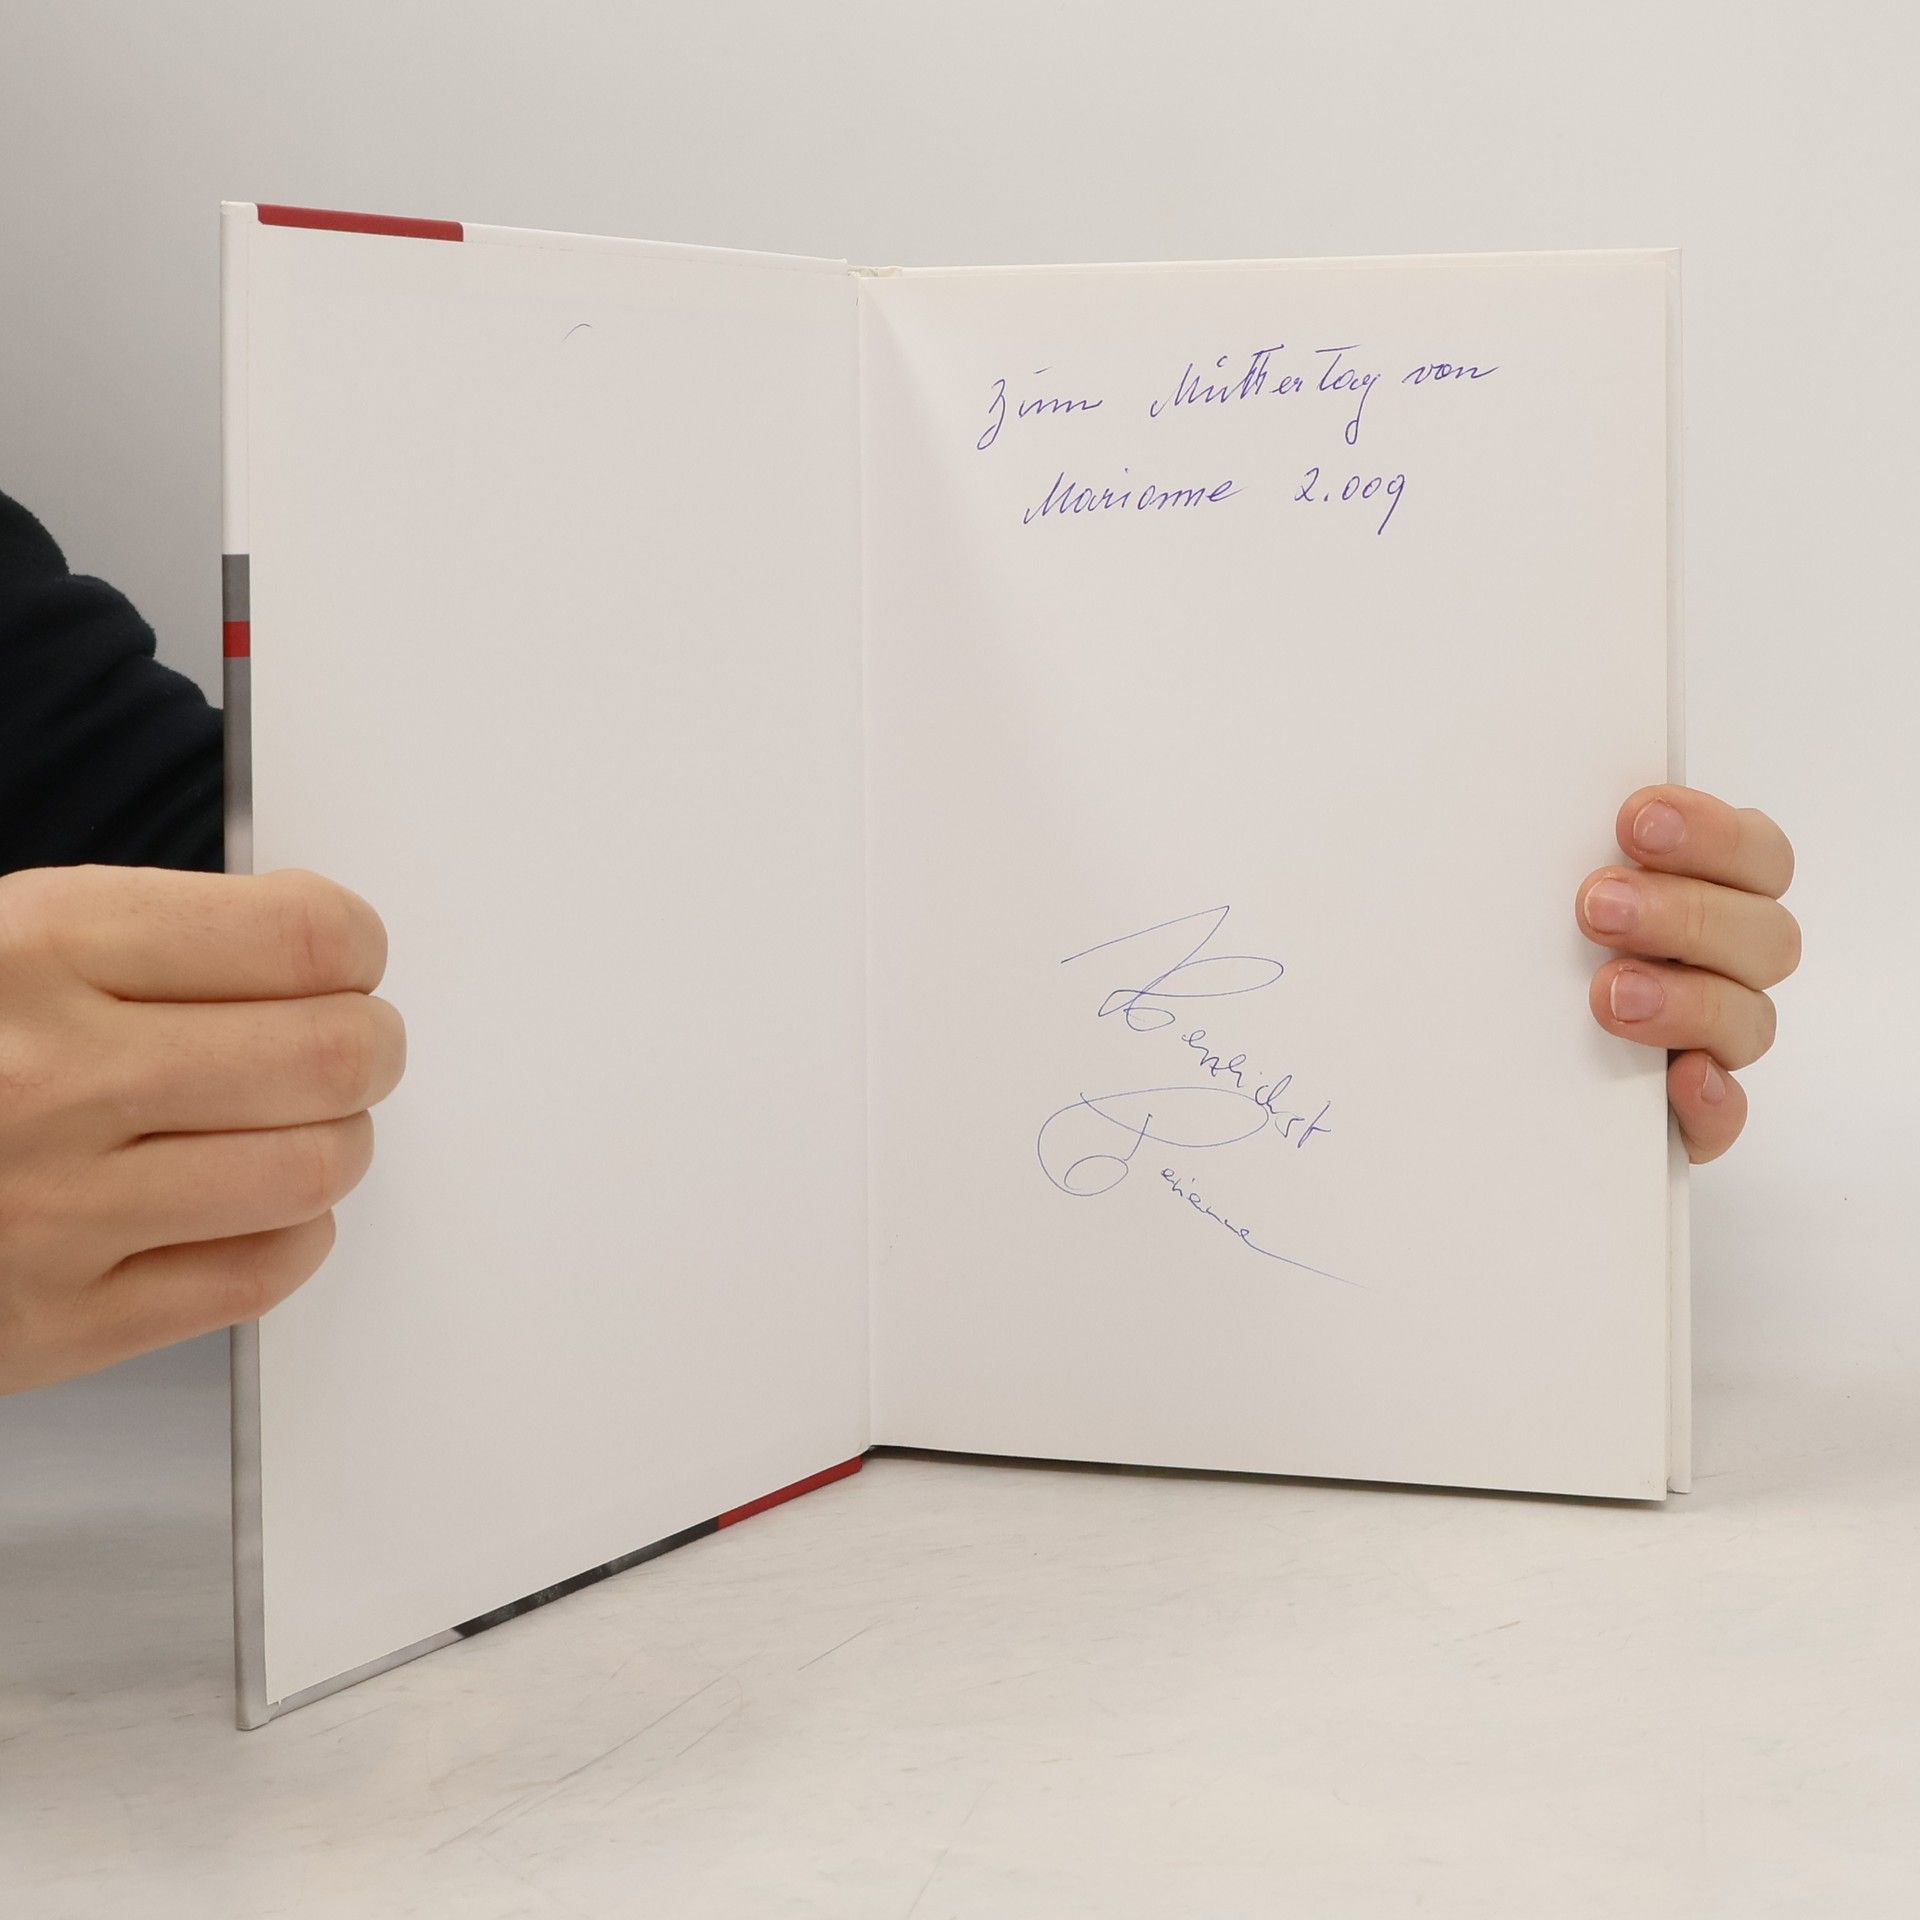 Zum Muttertag von
Marianne 2.009
Herzlichst